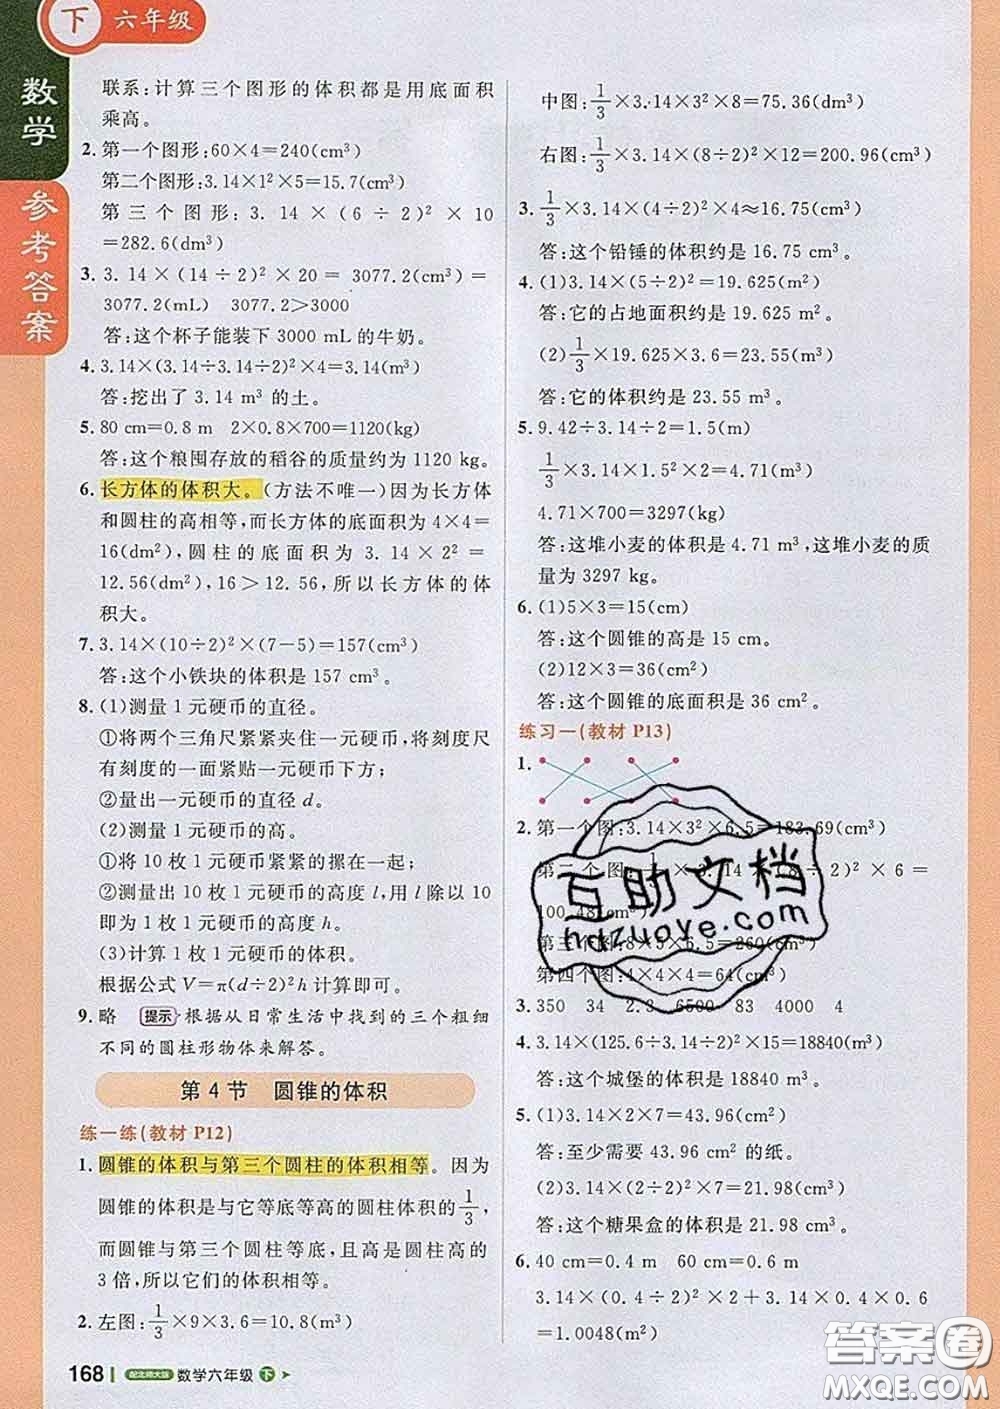 下 六年级
数学
参考答案
联系:计算三个图形的体积都是用底面积
乘高。
2. 第一个图形:60×4=240(cm³)
第二个图形:3.14×1²×5=15.7(cm³)
第三个图形:3.14×(6÷2)²×10
=282.6(dm³)
3. 3.14×(14÷2)²×20=3077.2(cm³)=
3077.2(mL) 3077.2>3000
答:这个杯子能装下 3000 mL的牛奶。
4. 3.14×(3.14÷3.14÷2)²×4=3.14(m³)
答:挖出了 3.14 m³ 的土。
5. 80 cm=0.8 m 2×0.8×700=1120(kg)
答:这个粮囤存放的稻谷的质量约为 1120 kg。
6. 长方体的体积大。(方法不唯一)因为长方体
和圆柱的高相等,而长方体的底面积为 4×4=
16(dm²),圆柱的底面积为 3.14×2²=
12.56(dm²),16>12.56,所以长方体的体
积大。
7. 3.14×(10÷2)²×(7-5)=157(cm³)
答:这个小铁块的体积是 157 cm³。
8. (1)测量 1 元硬币的直径。
①将两个三角尺紧紧夹住一元硬币,将刻度尺
有刻度的一面紧贴一元硬币下方;
②量出一元硬币的直径 d。
(2)测量 1 元硬币的高。
①将 10 枚 1 元硬币紧紧的摞在一起;
②测量出 10 枚 1 元硬币的高度 l,用 l 除以 10
即为 1 枚 1 元硬币的高度 h。
(3)计算 1 枚 1 元硬币的体积。
根据公式 V=π(d÷2)²h 计算即可。
9. 略 提示 根据从日常生活中找到的三个粗细
不同的圆柱形物体来解答。
第 4 节 圆锥的体积
练一练(教材 P12)
1. 圆锥的体积与第三个圆柱的体积相等。因为
圆锥的体积是与它等底等高的圆柱体积的 1/3,
而圆锥与第三个圆柱等底,且高是圆柱高的
3 倍,所以它们的体积相等。
2. 左图:1/3×9×3.6=10.8(m³)
168 配北师大版 数学六年级 下
中图:1/3×3.14×3²×8=75.36(dm³)
右图:1/3×3.14×(8÷2)²×12=200.96(cm³)
3. 1/3×3.14×(4÷2)²×4≈16.75(cm³)
答:这个铅锤的体积约是 16.75 cm³。
4. (1)3.14×(5÷2)²=19.625(m²)
答:它的占地面积约是 19.625 m²。
(2)1/3×19.625×3.6=23.55(m³)
答:它的体积约是 23.55 m³。
5. 9.42÷3.14÷2=1.5(m)
1/3×3.14×1.5²×2=4.71(m³)
4.71×700=3297(kg)
答:这堆小麦的体积是 4.71 m³,这堆小麦的质
量为 3297 kg。
6. (1)5×3=15(cm)
答:这个圆锥的高是 15 cm。
(2)12×3=36(cm²)
答:这个圆锥的底面积是 36 cm²。
练习一(教材 P13)
1.
2. 第一个图:3.14×3²×6.5=183.69(cm³)
第二个图:1/3×3.14×(8÷2)²×6=
100.48(cm³)
第三个图:8×5×6.5=260(cm³)
第四个图:4×4×4=64(cm³)
3. 350 34 2.3 6500 83 4000 4
4. 3.14×(125.6÷3.14÷2)²×15=18840(m³)
答:这个城堡的体积是 18840 m³。
5. (1)3.14×2×7=43.96(cm²)
答:至少需要 43.96 cm² 的纸。
(2)3.14×(2÷2)²×7=21.98(cm³)
答:这个糖果盒的体积是 21.98 cm³。
6. 40 cm=0.4 m 60 cm=0.6 m
3.14×(0.4÷2)²×2+3.14×0.4×0.6
=1.0048(m²)
互助文档
hdzuoye.com
答案圈
MXQE.COM